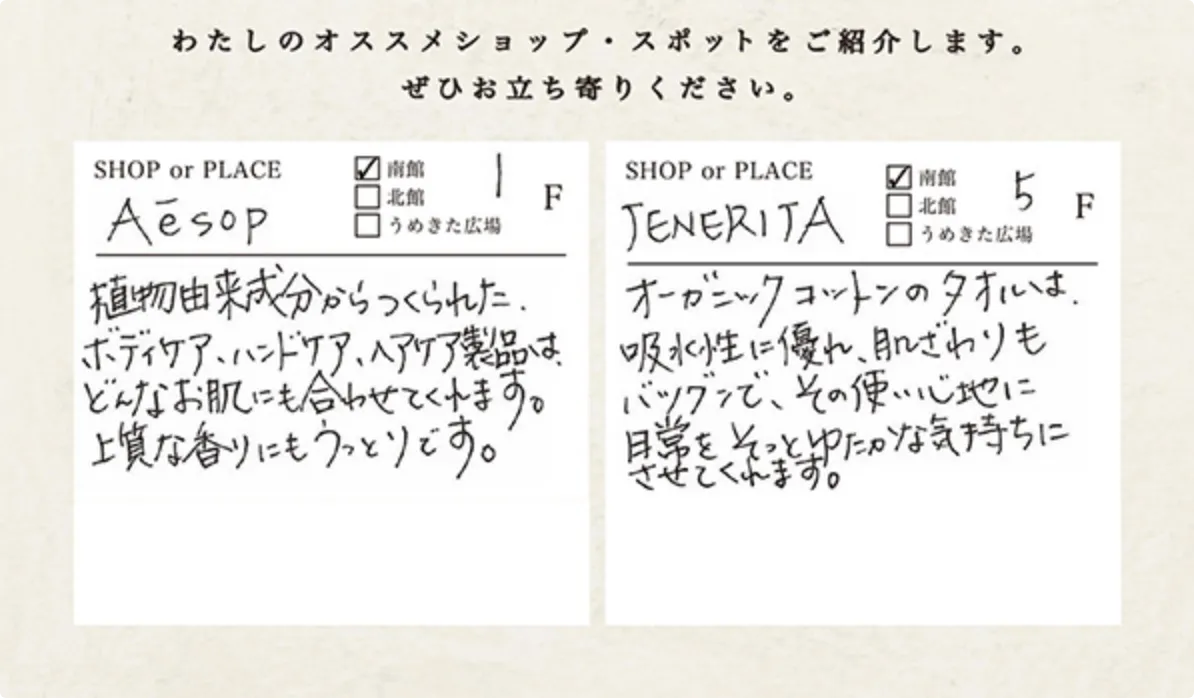 わたしのオススメショップ・スポットをご紹介します。
ぜひお立ち寄りください。
SHOP or PLACE
Aēsop
☑ 南館
☐ 北館
☐ うめきた広場
1 F
植物由来成分からつくられた、
ボディケア、ハンドケア、ヘアケア製品は、
どんなお肌にも合わせてくれます。
上質な香りにもうっとりです。
SHOP or PLACE
TENERITA
☑ 南館
☐ 北館
☐ うめきた広場
5 F
オーガニックコットンのタオルは、
吸水性に優れ、肌ざわりも
バツグンで、その使い心地に
日常をそっとゆたかな気持ちに
させてくれます。